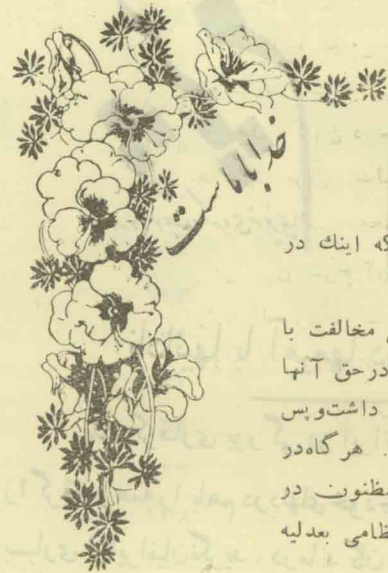 خدا با ماست
که اینك در
مخالفت با
درحق آنها
داشت‌و پس
. هر گاه‌در
مظنون در
ظامی بعدلیه